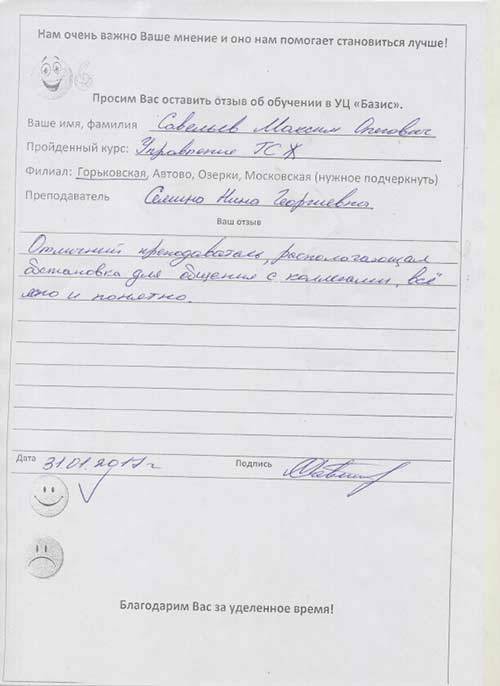 Нам очень важно Ваше мнение и оно нам помогает становиться лучше!
Просим Вас оставить отзыв об обучении в УЦ «Базис».
Ваше имя, фамилия Савельев Максим Олегович
Пройденный курс: Управление ТСЖ
Филиал: Горьковская, Автово, Озерки, Московская (нужное подчеркнуть)
Преподаватель Семина Нина Георгиевна
Ваш отзыв
Отличный преподаватель, располагающая
обстановка для общения с коллегами, всё
ясно и понятно.
Дата 31.01.2017г Подпись
Благодарим Вас за уделенное время!